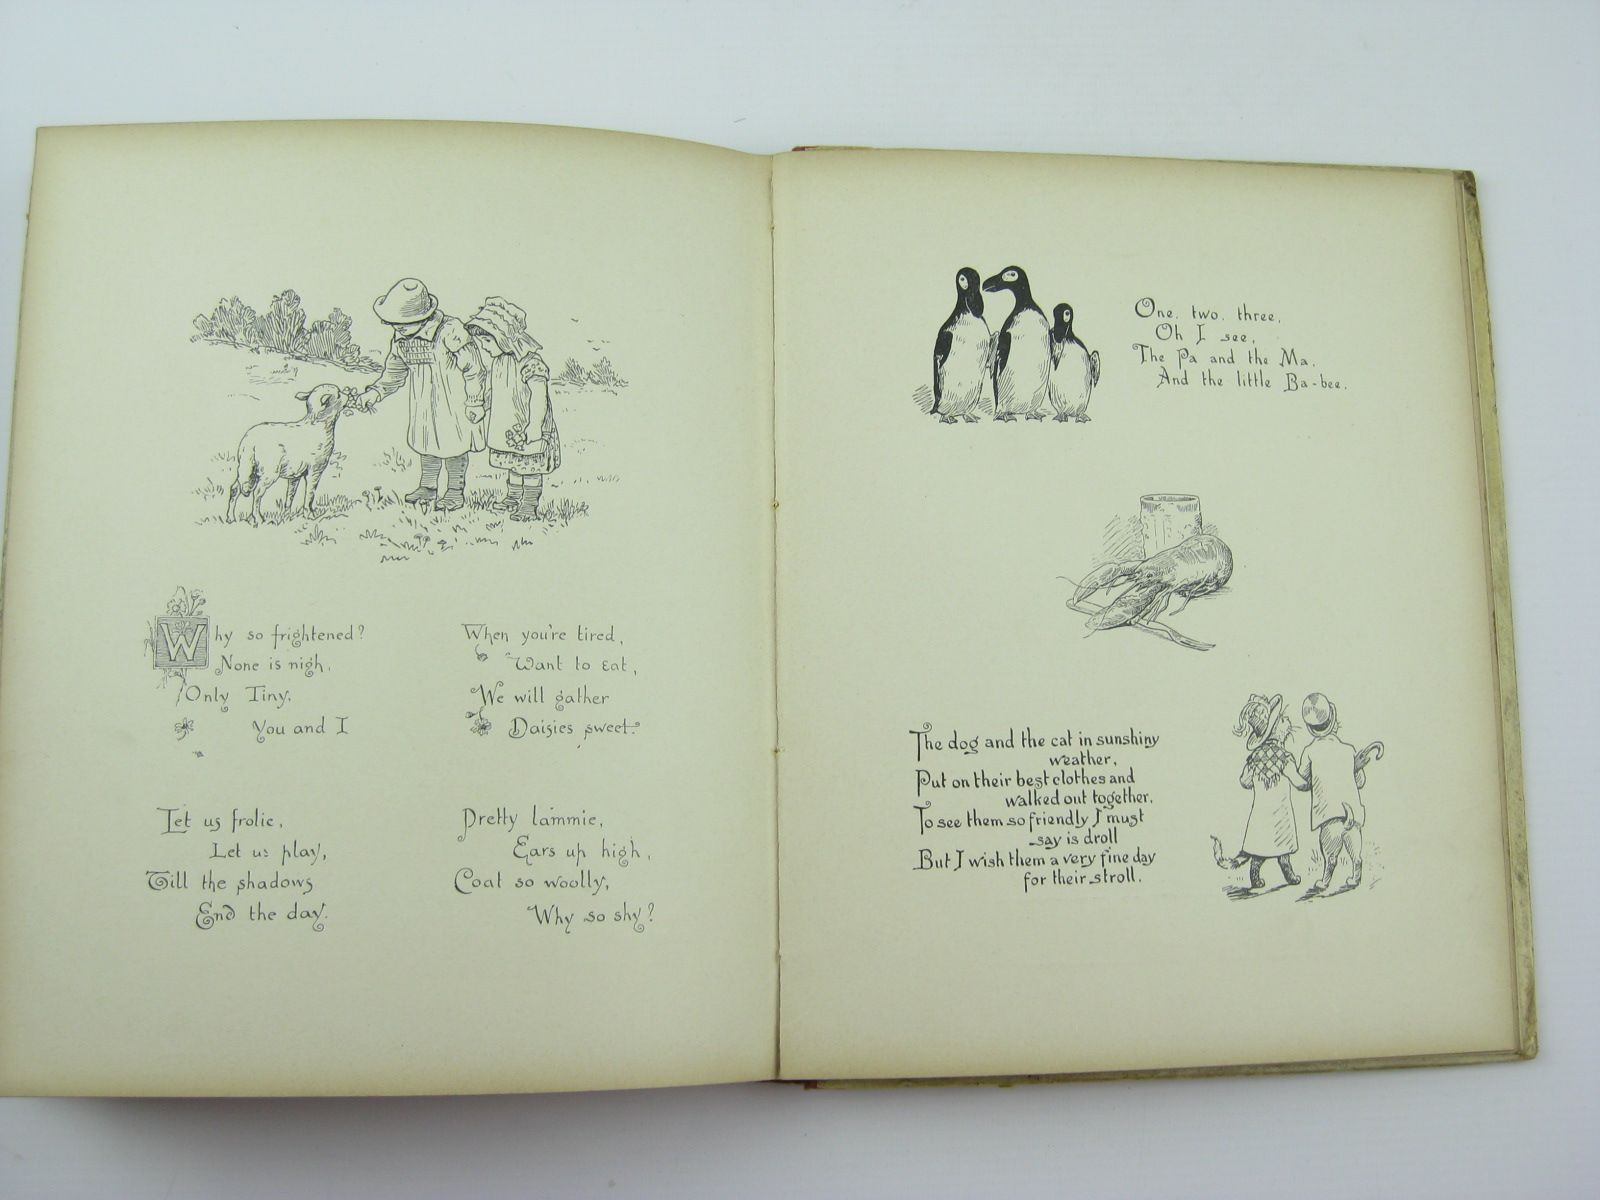 Why so frightened?
None is nigh,
Only Tiny,
You and I
Let us frolic,
Let us play,
Till the shadows
End the day.
When you're tired,
Want to eat,
We will gather
Daisies sweet.
Pretty lammie,
Ears up high,
Coat so woolly,
Why so shy?
One, two, three,
Oh I see,
The Pa and the Ma,
And the little Ba-bee.
The dog and the cat in sunshiny
weather,
Put on their best clothes and
walked out together,
To see them so friendly I must
say is droll
But I wish them a very fine day
for their stroll.